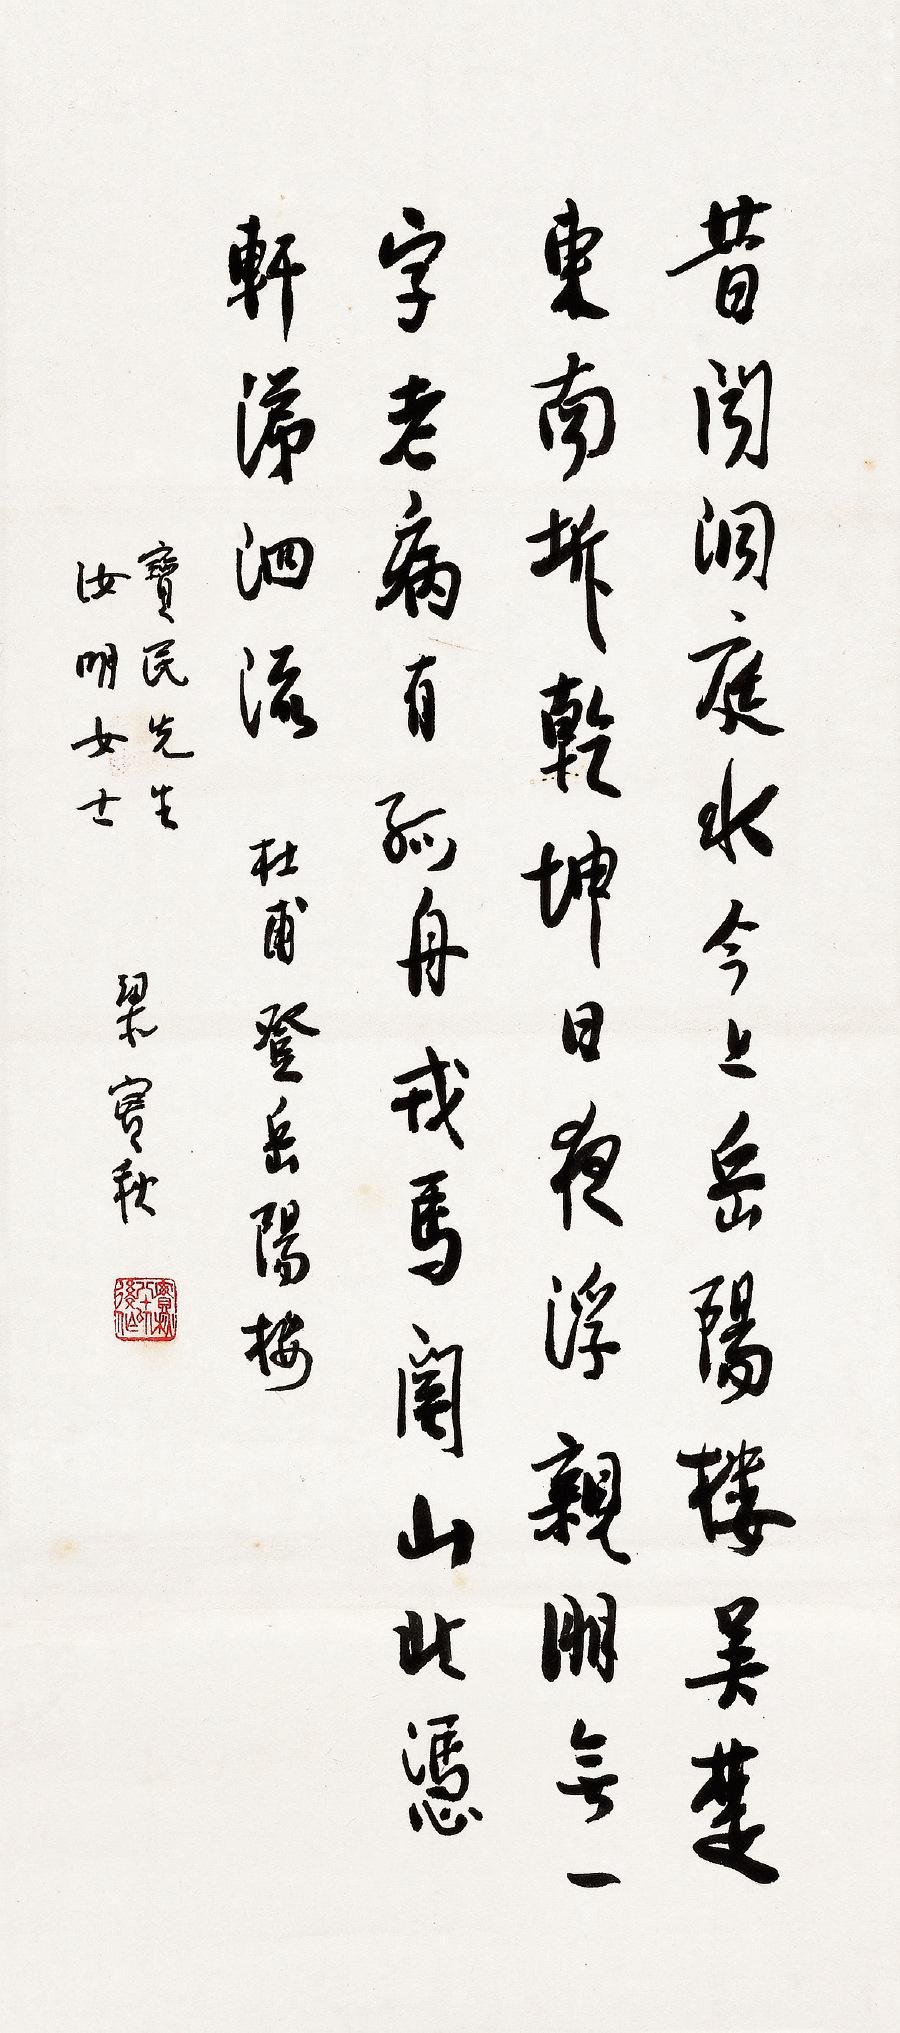 昔聞洞庭水今上岳陽樓吳楚
東南坼乾坤日夜浮親朋無一
字老病有孤舟戎馬關山北憑
軒涕泗流 杜甫登岳陽樓
寶民先生
汝明女士
梁實秋